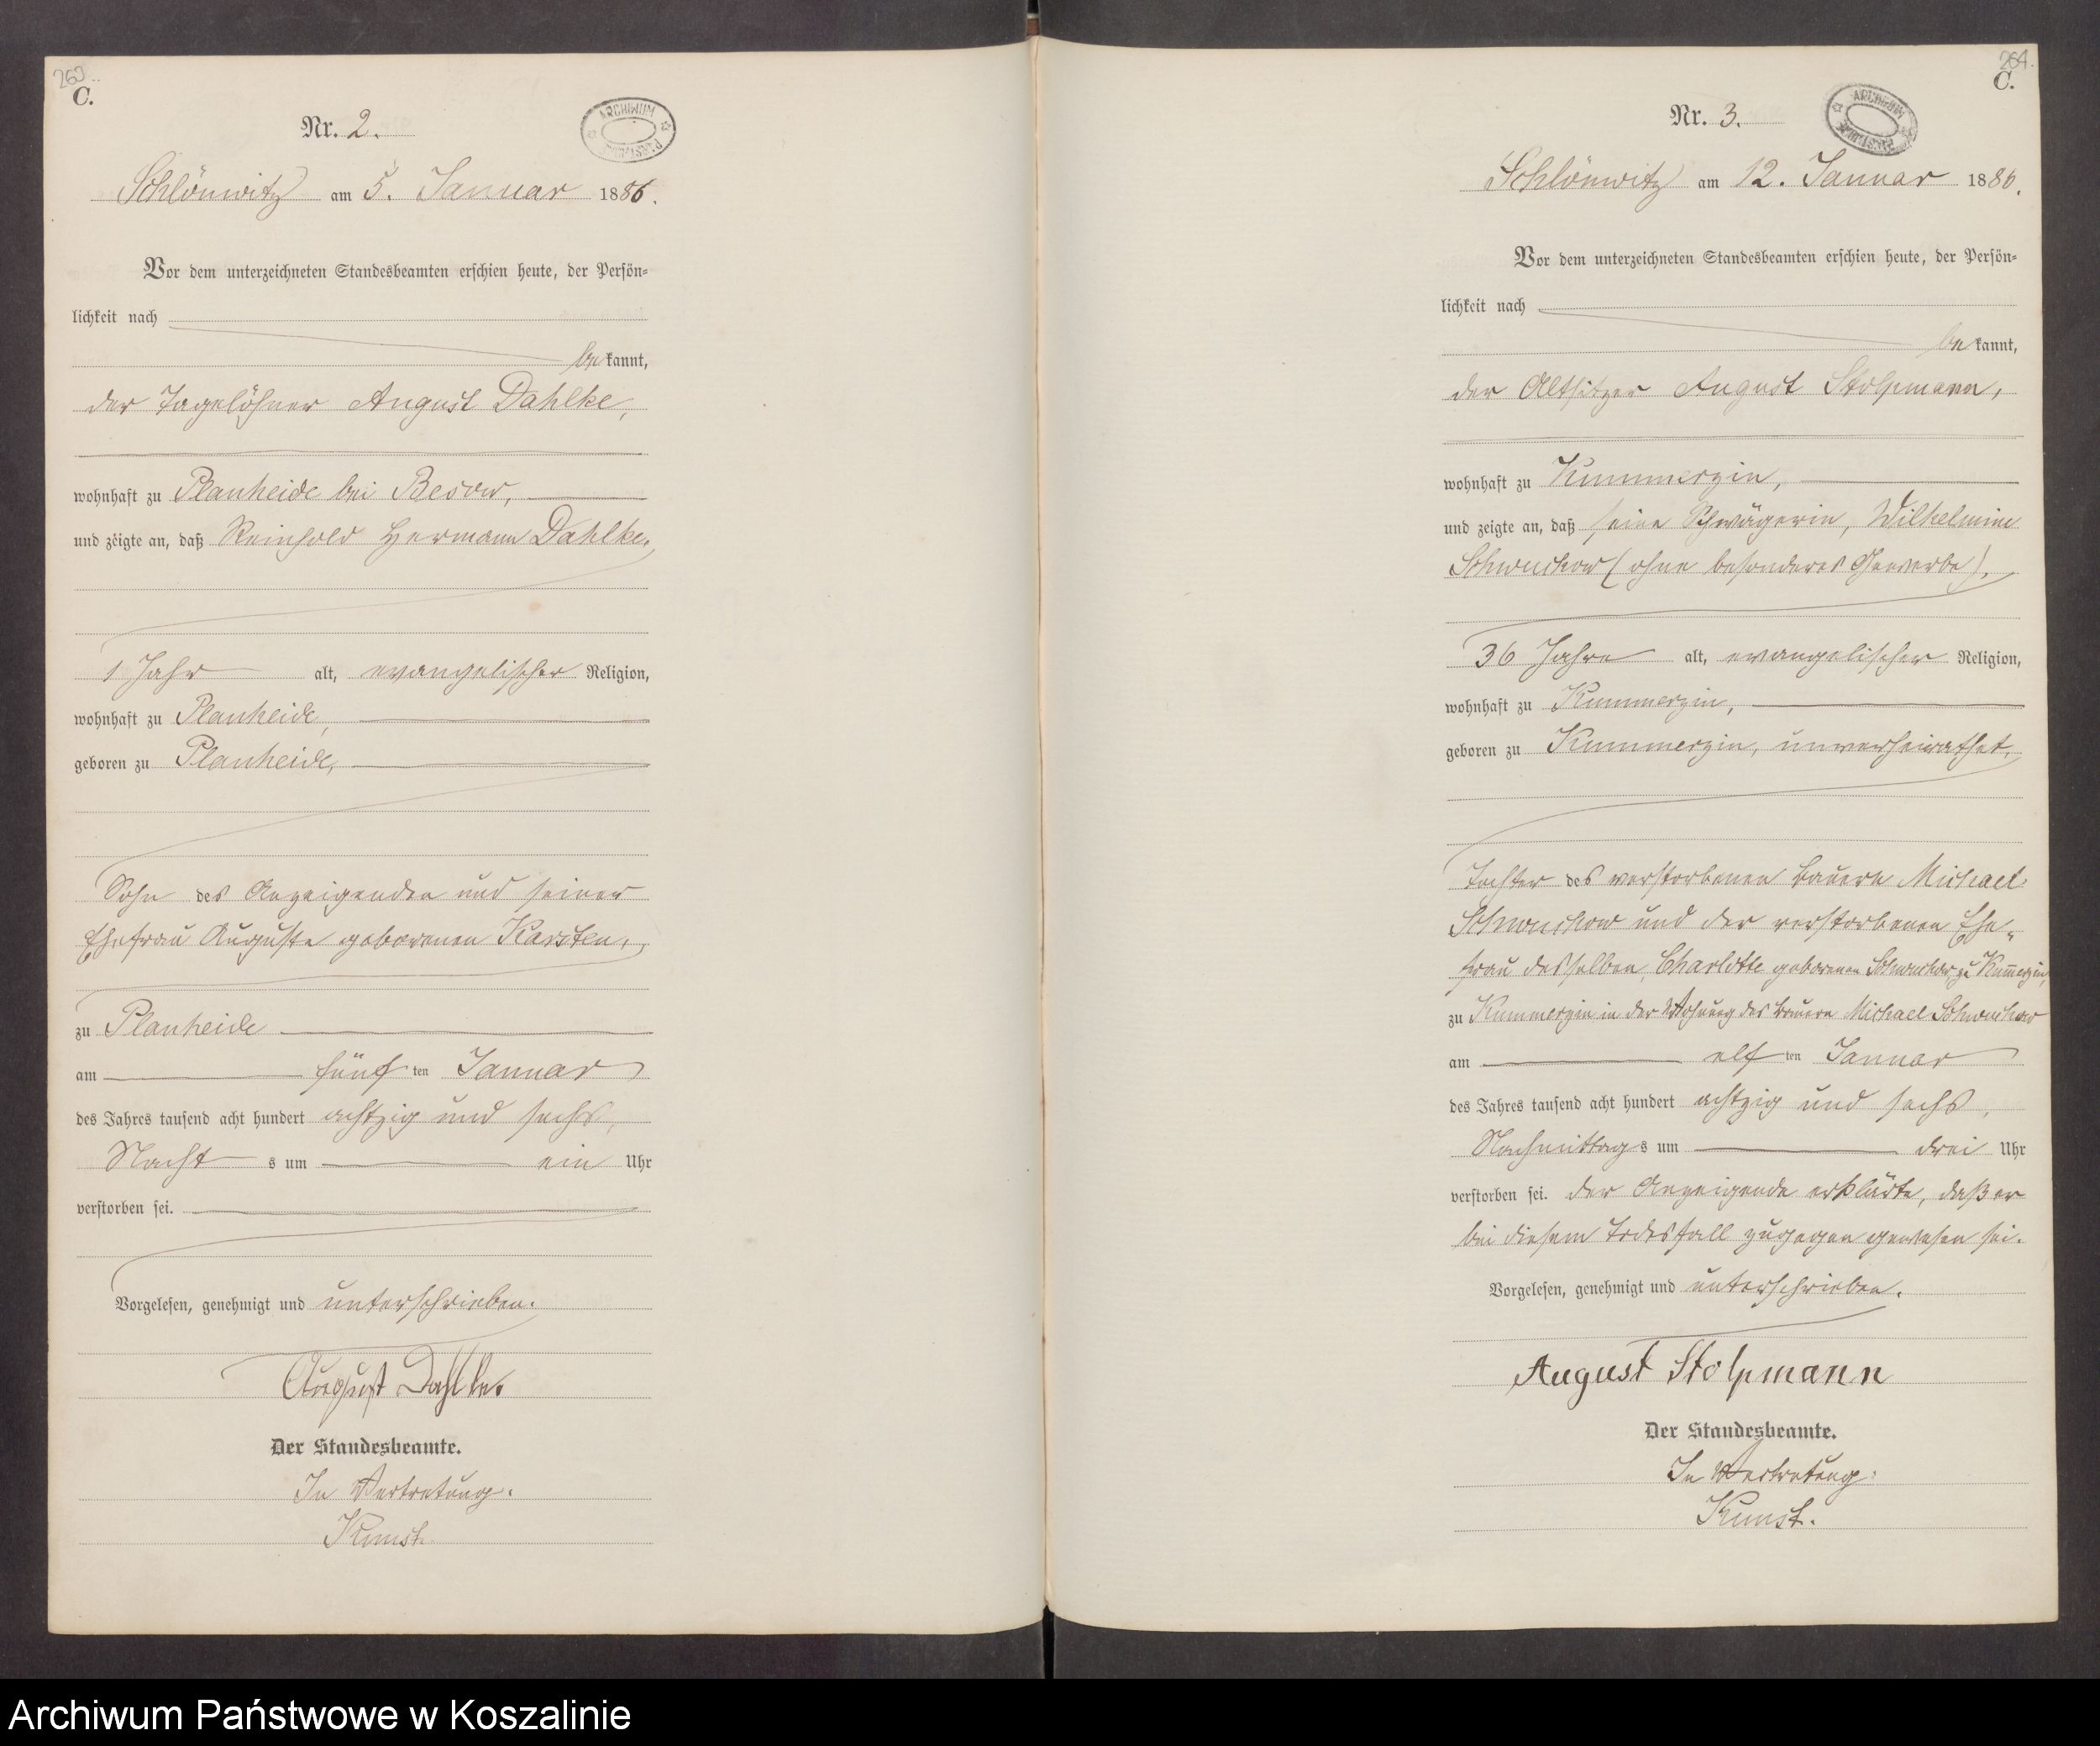 263.
C.
Nr. 2.
ARCHIWUM
Schlönwitz am 5. Januar 1886.
Vor dem unterzeichneten Standesbeamten erschien heute, der Persön=
lichkeit nach
be kannt,
der Tagelöhner August Dahlke,
wohnhaft zu Planheide bei Besow,
und zeigte an, daß Reinhold Hermann Dahlke,
1 Jahr alt, evangelischer Religion,
wohnhaft zu Planheide,
geboren zu Planheide,
Sohn des Anzeigenden und seiner
Ehefrau Auguste geborenen Karsten,
zu Planheide
am fünf ten Januar
des Jahres tausend acht hundert achtzig und sechs,
Nacht s um ein Uhr
verstorben sei.
Vorgelesen, genehmigt und unterschrieben.
August Dahlke.
Der Standesbeamte.
In Vertretung.
Kunst.
264.
C.
Nr. 3.
ARCHIWUM
Schlönwitz am 12. Januar 1886.
Vor dem unterzeichneten Standesbeamten erschien heute, der Persön=
lichkeit nach
be kannt,
der Altsitzer August Stolpmann,
wohnhaft zu Kummerzin,
und zeigte an, daß seine Schwägerin, Wilhelmine
Schwuchow (ohne besonderes Gewerbe),
36 Jahre alt, evangelischer Religion,
wohnhaft zu Kummerzin,
geboren zu Kummerzin, unverheirathet,
Tochter des verstorbenen Bauern Michael
Schwuchow und der verstorbenen Ehe„
frau desselben, Charlotte geborenen Schwuchow, zu Kum̄erzin,
zu Kummerzin in der Wohnung des Bauern Michael Schwuchow
am elf ten Januar
des Jahres tausend acht hundert achtzig und sechs,
Nachmittag s um drei Uhr
verstorben sei. Der Anzeigende erklärte, daß er
bei diesem Todesfall zugegen gewesen sei.
Vorgelesen, genehmigt und unterschrieben.
August Stolpmann
Der Standesbeamte.
In Vertretung:
Kunst.
Archiwum Państwowe w Koszalinie